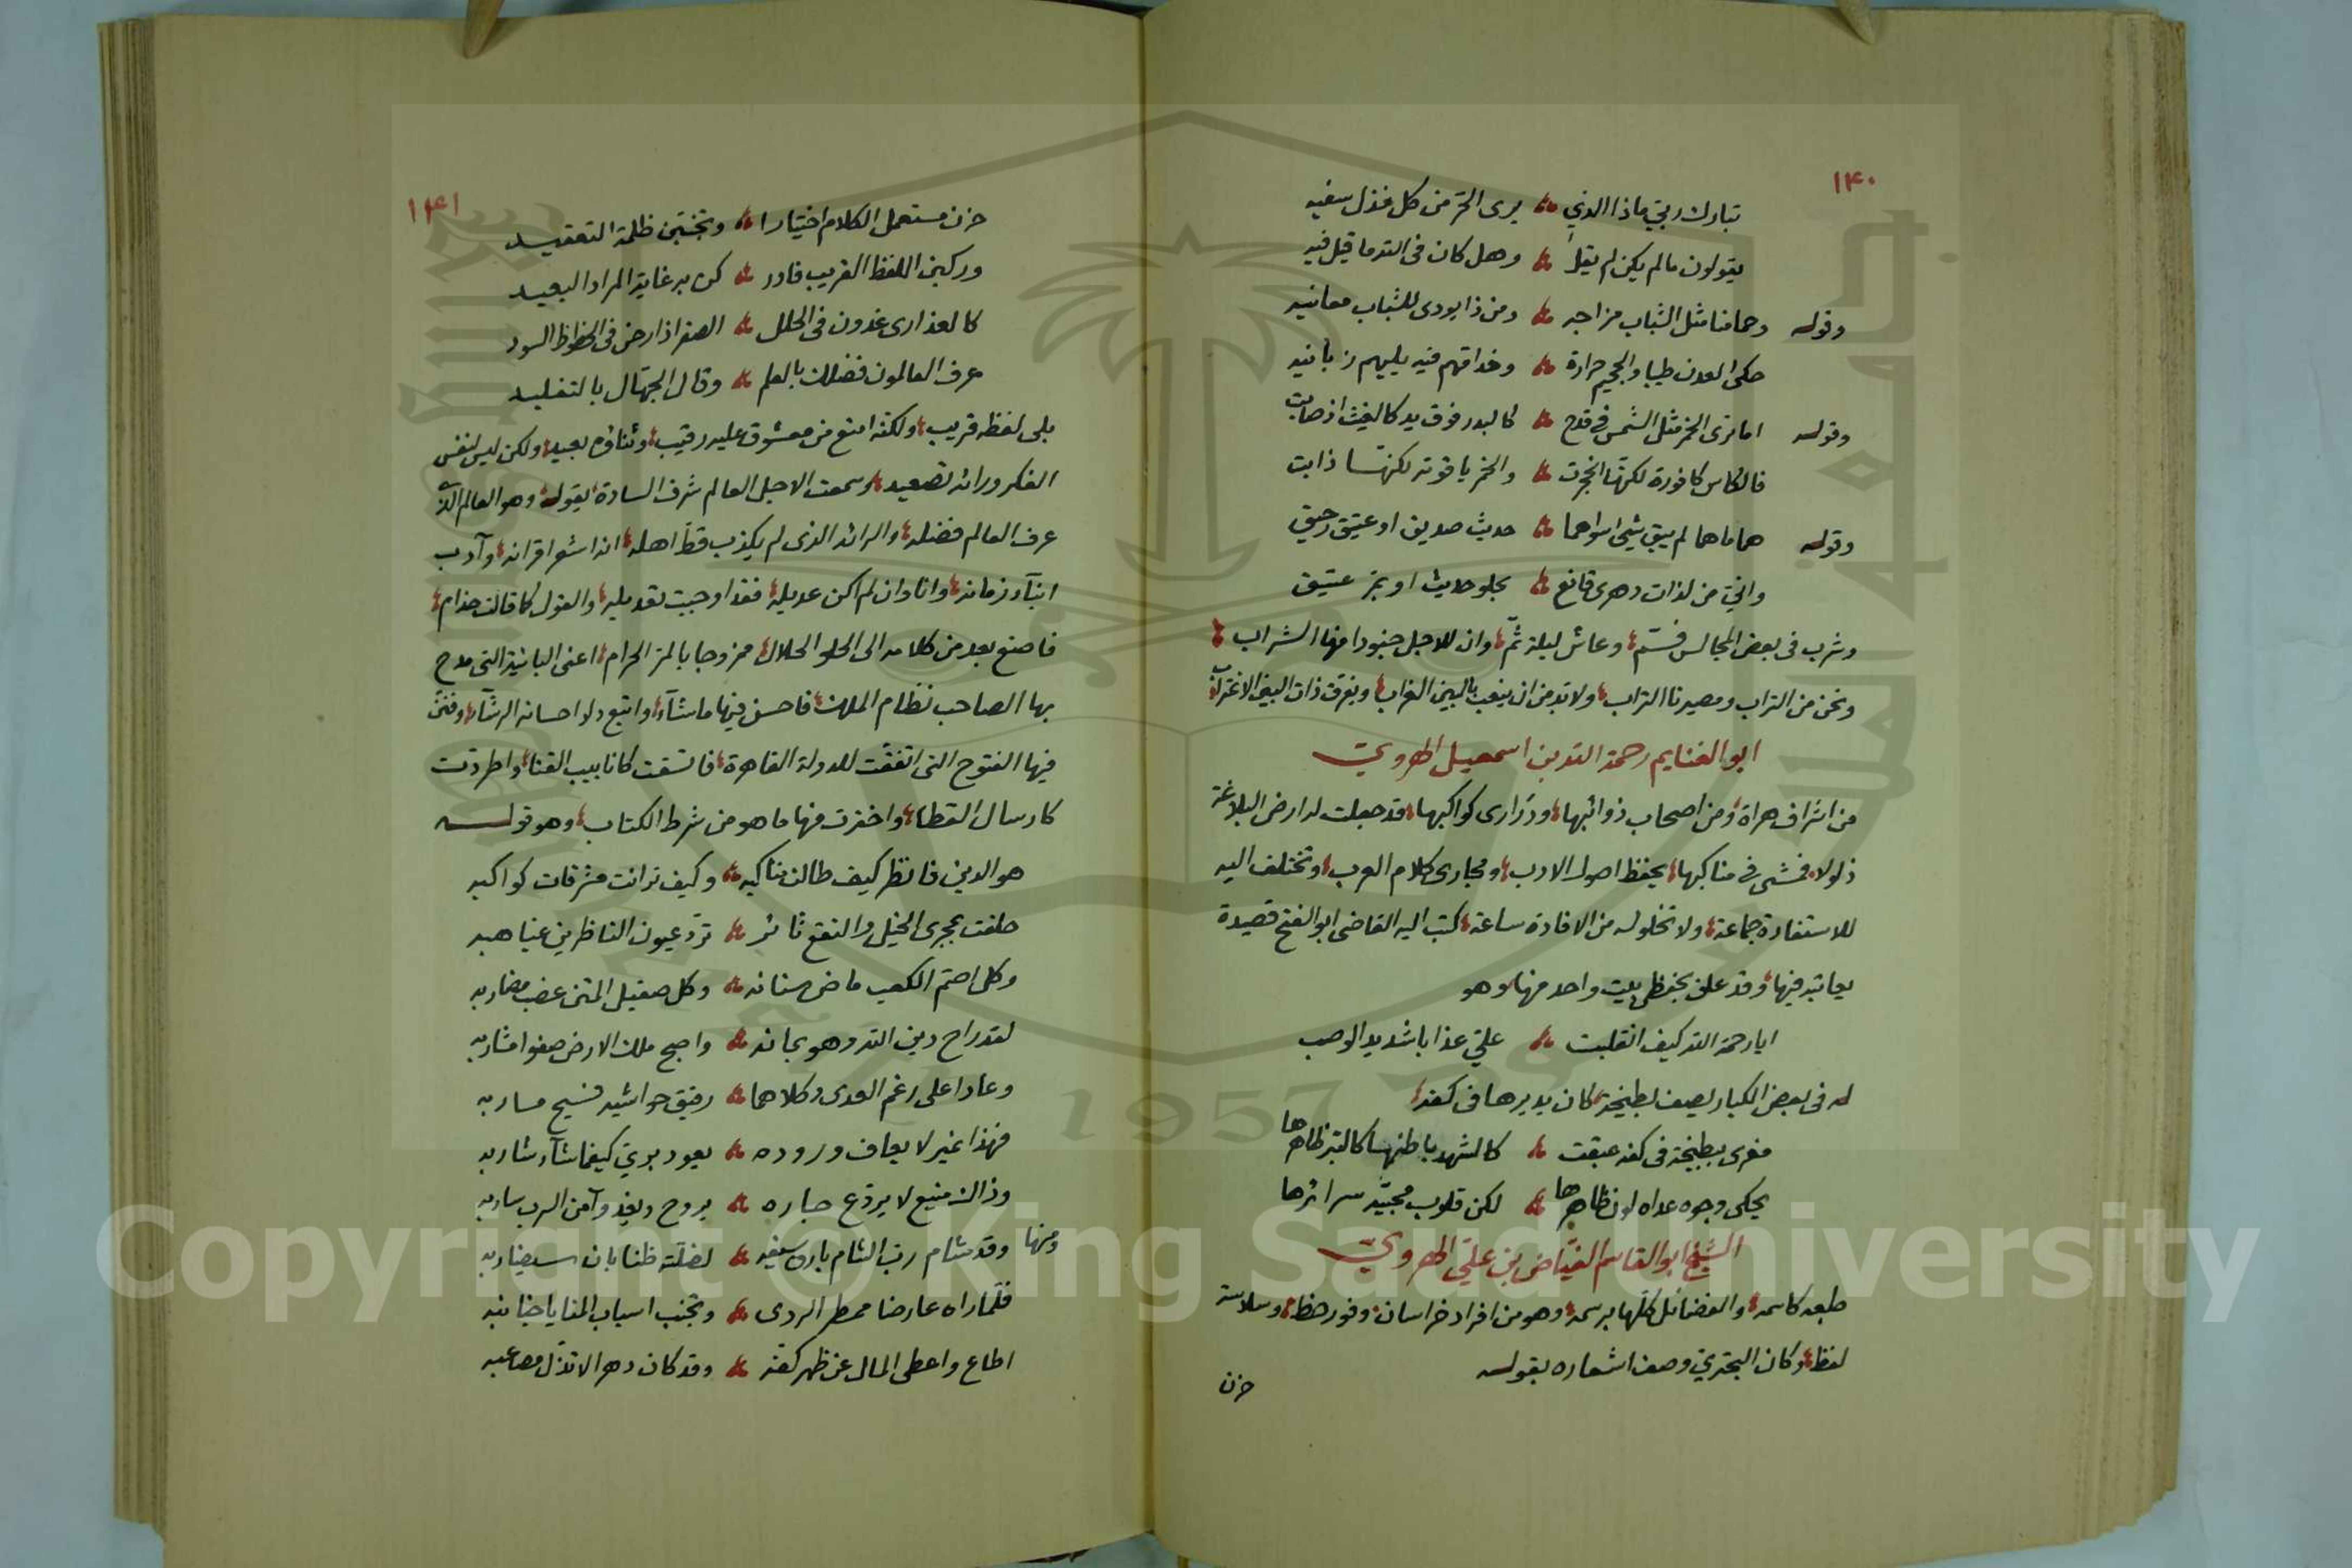 ١٤٠
تبارك ربي ماذا الذي ؞ يرى الحر من كل فذل سفيه
يقولون مالم يكن لم يقل ؞ وهل كان في الله ما قيل فيه
وقوله وحمامنا مثل الشباب مزاجه ؞ ومن ذا يودى للشباب معانيه
حكى العدن طيبا والجحيم حرارة ؞ وخداقهم فيه يليهم زبانيه
وقوله اما ترى الخمر مثل الشمس في قدح ؞ كالبدر فوق يد كالغيث اذ صابت
فالكاس كافورة لكنها انحجرت ؞ والخمر ياقوتة لكنها ذابت
وقوله هما ماهما لم يبق شيئ سواهما ؞ حديث صديق او عتيق رحيق
واني من لذات دهرى قانع ؞ بحلو حديث او بمر عتيق
وشرب في بعض المجالس فسم وعاش ليلة ثم وان للاجل جنودا منها الشراب
ونحن من التراب ومصيرنا التراب ولا بد من ان ينعب بالبين الغراب ويفرق ذات البين الاغتراب
ابو الغنايم رحمة الله بن اسمعيل الهروي
من اشراف هراة ومن اصحاب ذوائبها ودرارى كواكبها قد جعلت له ارض البلاغة
ذلولا فمشى في مناكبها يحفظ اصول الادب ومجارى كلام العرب وتختلف اليه
للاستفادة جماعة ولا تخلو له من الافادة ساعة كتب اليه القاضى ابو الفتح قصيدة
يعاتبه فيها وقد علق بحفظى بيت واحد منها وهو
ايا رحمة الله كيف انقلبت ؞ علي عذابا شديد الوصب
له في بعض الكبار يصف بطيخة كان يديرها في كفه
مغرى ببطيخة في كفه عبقت ؞ كالشهد باطنها كالتبر ظاهرها
يحكى وجوه عداه لون ظاهرها ؞ لكن قلوب محبيه سرائرها
الشيخ ابو القاسم الفياض بن علي الهروي
طبعه كاسمه والفضائل كلها برسمه وهو من افراد خراسان وفور حظ وسلاسة
لفظ وكان البحتري وصف اشعاره بقوله
حزن
١٤١
حزن مستعمل الكلام اختيارا ؞ وتجنبن ظلمة التعقيد
وركبن اللفظ القريب فادر ؞ كن به غاية المراد البعيد
كالعذارى غدون في الحلل ؞ الصفر اذا رحن في الخطوط السود
عرف العالمون فضلك بالعلم ؞ وقال الجهال بالتقليد
بلى لفظه قريب ولكنه امنع من معشوق عليه رقيب وثناؤه بعيد ولكن ليس لنفس
الفكر ورائه تصعيد وسمعت الاجل العالم شرف السادة يقول وهو العالم الذي
عرف العالم فضله والرائد الذى لم يكذب قط اهله انه اشعر اقرانه وآدب
ابناء زمانه وانا وان لم اكن عديله فقد اوجبت تعديله والقول كما قالت حذام
فاصنع بعد من كلامه الى الحلو الحلال ممزوجا بالمر الحرام اعنى البائية التى مدح
بها الصاحب نظام الملك فاحسن فيها ماشآء واتبع دلو احسانه الرشآء وفتق
فيها الفتوح التى اتفقت للدولة القاهرة فاتسقت كانابيب القنا واطردت
كارسال القطا واخترت منها ما هو من شرط الكتاب وهو قوله
هو الدين فانظر كيف طالت مناكبه ؞ وكيف تدانت مشرقات كواكبه
حلفت بمجرى الخيل والنقع ثائر ؞ ترد عيون الناظرين غياهبه
وكل اصم الكعب ماض سنانه ؞ وكل صقيل المتن عضب مضاربه
لقد راح دين الله وهو بجانه ؞ واصبح ملك الارض صفوا مشاربه
وعادا على رغم العدى وكلاهما ؞ رقيق حواشيه فسيح مساربه
فهذا نمير لا يعاف وروده ؞ يعود بري كيفما شآء شاربه
وذاك منيع لا يروع جاره ؞ يروح ويغدو آمن السرب ساربه
ومنها وقد شام رب الشام بارق سيفه ؞ لضلته ظنا بان سيضاربه
فلما راه عارضا ممطر الردى ؞ وتجنب اسباب المنايا جنائبه
اطاع واعطى المال عن ظهر كفه ؞ وقد كان دهرا لا تذل مصاعبه
Copyright © King Saud University
1957